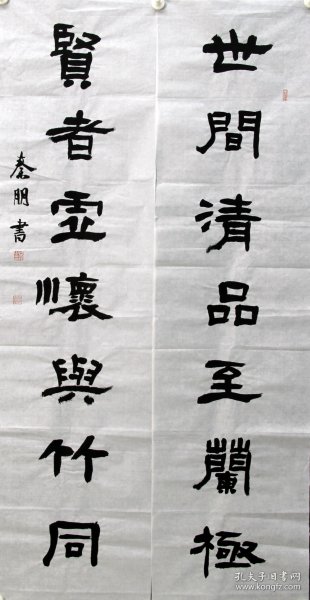 世間清品至蘭極
賢者虛懷與竹同
秦朋書
孔夫子旧书网
www.kongfz.com